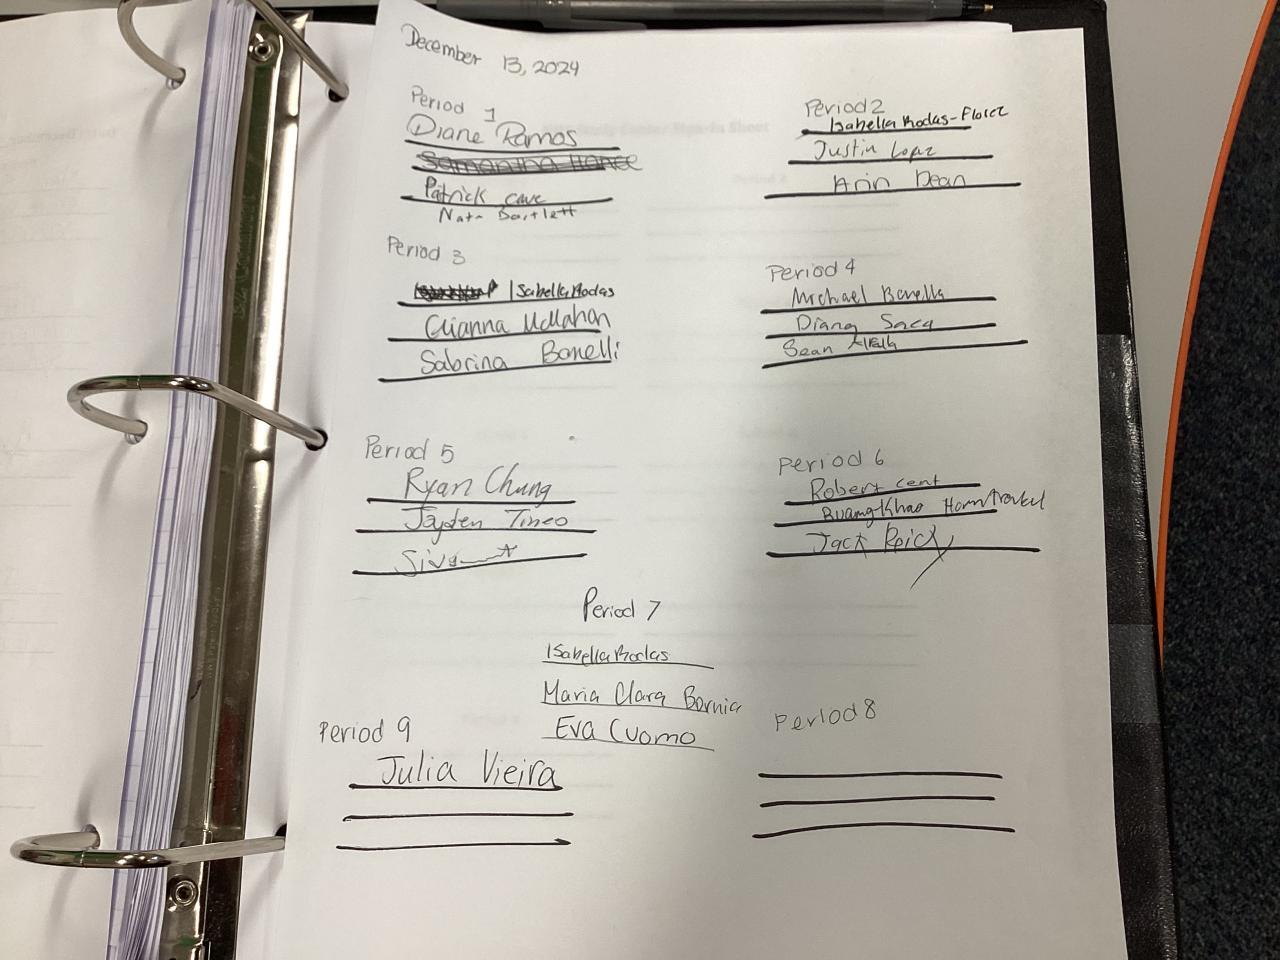 December 13, 2024
Period 1
Diane Ramos
Patrick cave
Nate Bartlett
Period 2
Isabella Rodas-Florez
Justin Lopz
Arin Dean
Period 3
Isabella Rodas
McMahon
Sabrina Bonelli
Period 4
Michael Bonella
Diana Saca
Sean
Period 5
Ryan Chung
Jayden Tineo
Period 6
Robert cent
Jack
Period 7
Isabella Rodas
Maria Clara Bernia
Eva Cuomo
Period 9
Julia Vieira
Period 8